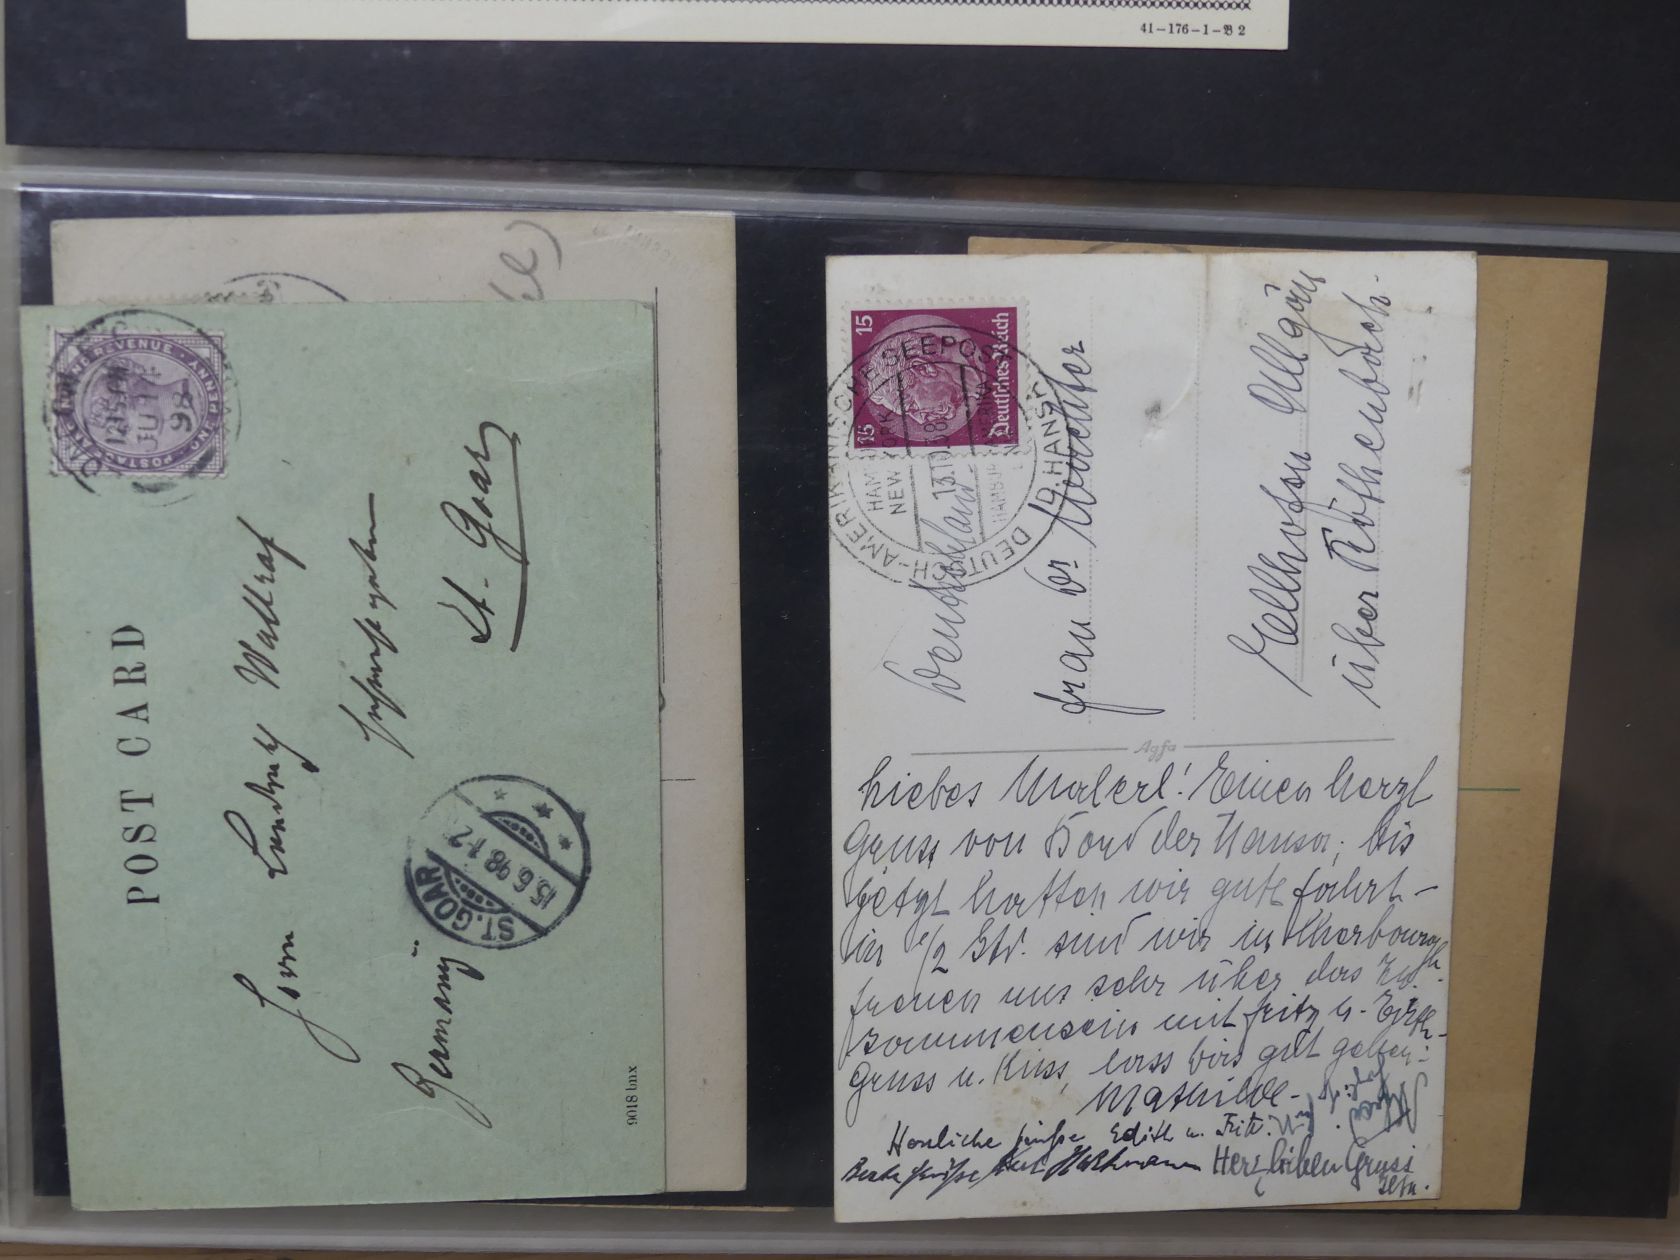 41-176-1-B 2
POSTAGE AND INLAND REVENUE · ONE PENNY
12.15 AM
JU 14
98
POST CARD
Herrn Ludwig Wallraf
St. Goar
Germany
ST. GOAR
15.6.98 1-2
9018 bnx
15 15
Deutsches Reich
DEUTSCH-AMERIKANISCHE SEEPOST
NEW YORK
13.10.38
D. HANSA
Deutschland
Frau Dr. 
Ellhofen Allgäu
über Röthenbach.
Agfa
Liebes Malerl! Einen herzl
Gruss von Bord der Hansa; bis
jetzt hatten wir gute Fahrt -
in 1/2 Std. sind wir in Cherbourg
freuen uns sehr über das Zu-
sammensein mit Fritz u. Edith-
Gruss u. Kuss, lass Dirs gut gehen!
Mathilde -
Herzliche Grüße Edith u. Fritz
Beste Grüße Hartmann
Herzlichen Gruss